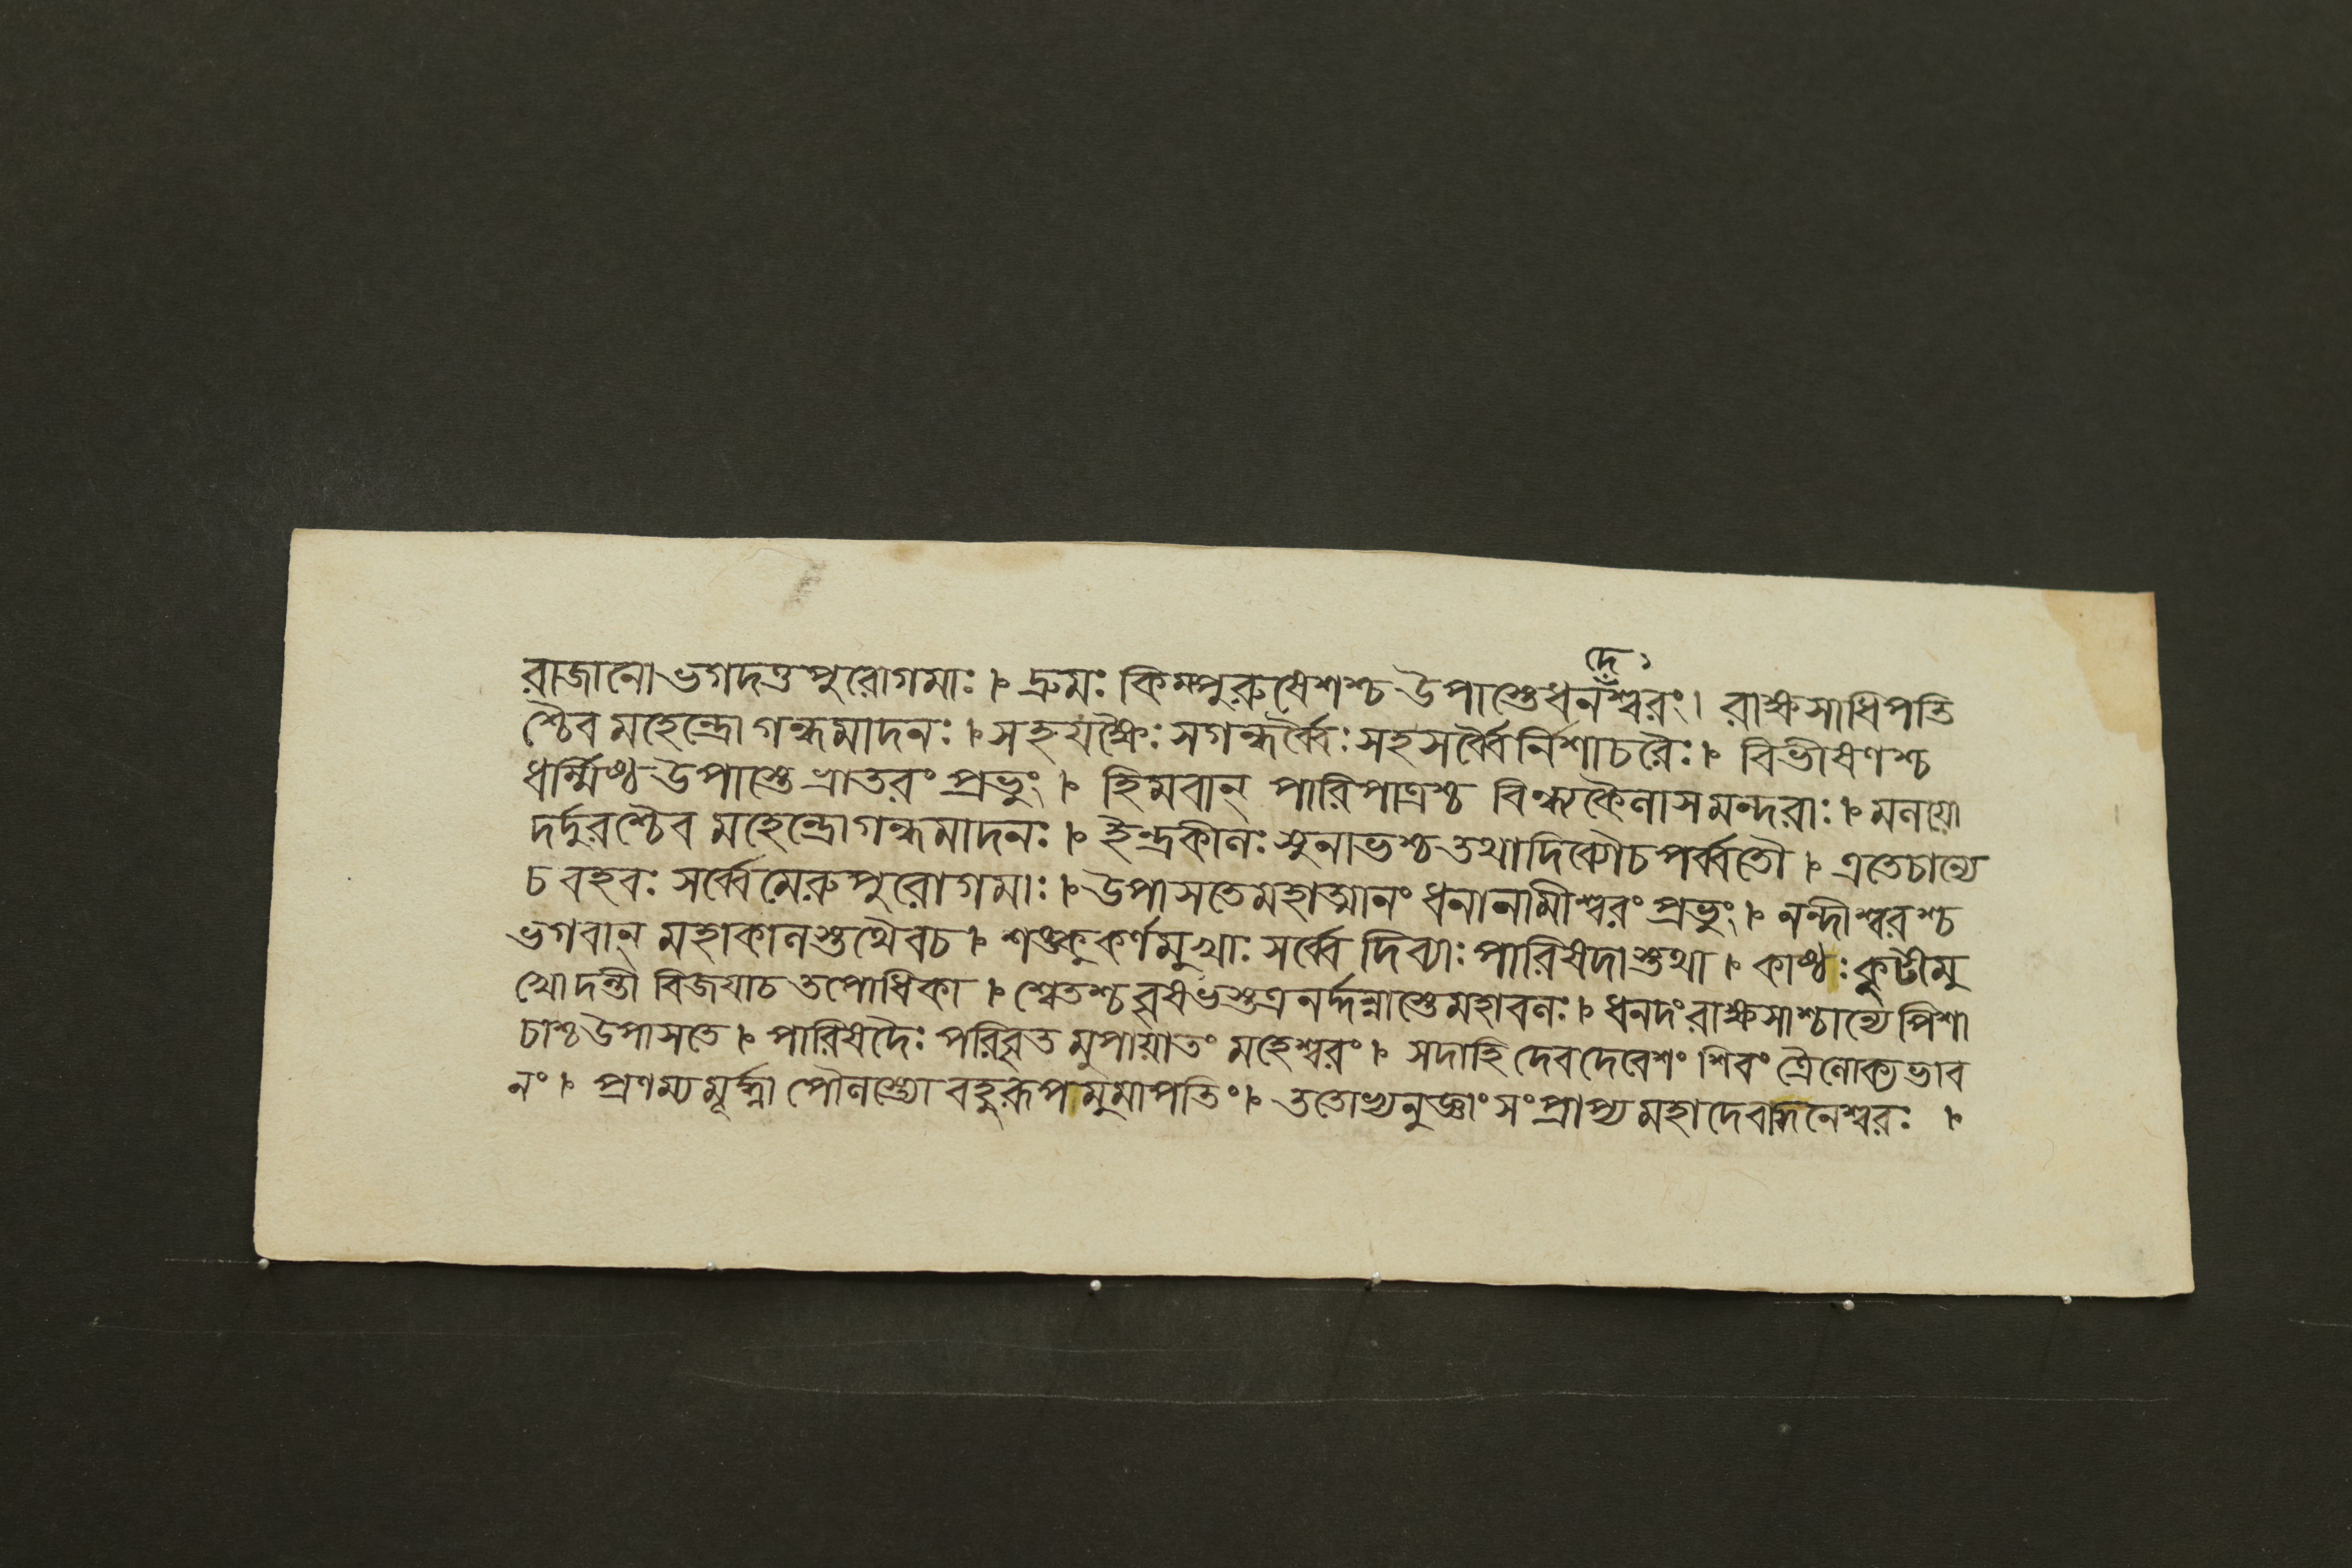 দে,
রাজানো ভগদত্তপুরোগমাঃ ৷৷ দ্রুমঃ কিম্পুরুষেশশ্চ উপাস্তে ধনশ্বরং ৷ রাক্ষসাধিপতি
শ্চৈব মহেন্দ্রো গন্ধমাদনঃ ৷৷ সহ যক্ষৈঃ সগন্ধর্ব্বৈঃ সহ সর্ব্বৈর্নিশাচরৈঃ ৷৷ বিভীষণশ্চ
ধর্ম্মিষ্ঠ উপাস্তে ভ্রাতরং প্রভুং ৷৷ হিমবান্ পারিপাত্রশ্চ বিন্ধ্যকৈলাসমন্দরাঃ ৷৷ মলয়ো
দর্দুরশ্চৈব মহেন্দ্রো গন্ধমাদনঃ ৷৷ ইন্দ্রকীলঃ সুনাভশ্চ তথা দিব্যৌ চ পর্ব্বতৌ ৷৷ এতে চান্যে
চ বহবঃ সর্ব্বে মেরুপুরোগমাঃ ৷৷ উপাসতে মহাত্মানং ধনানামীশ্বরং প্রভুং ৷৷ নন্দীশ্বরশ্চ
ভগবান্ মহাকালস্তথৈব চ ৷৷ শঙ্কুকর্ণমুখাঃ সর্ব্বে দিব্যাঃ পারিষদাস্তথা ৷৷ কাষ্ঠঃ কুটীমু
খো দন্তী বিজয়া চ তপোধিকা ৷৷ শ্বেতশ্চ বৃষভস্তত্র নর্দ্দন্নাস্তে মহাবলঃ ৷৷ ধনদং রাক্ষসাশ্চান্যে পিশা
চাশ্চ উপাসতে ৷৷ পারিষদৈঃ পরিবৃতমুপায়াতং মহেশ্বরং ৷৷ সদা হি দেবদেবেশং শিবং ত্রৈলোক্যভাব
নং ৷৷ প্রণম্য মূর্দ্ধ্না পৌলস্ত্যো বহুরূপমুমাপতিং ৷৷ ততোভ্যনুজ্ঞাং সংপ্রাপ্য মহাদেবাদ্ধনেশ্বরঃ ৷৷